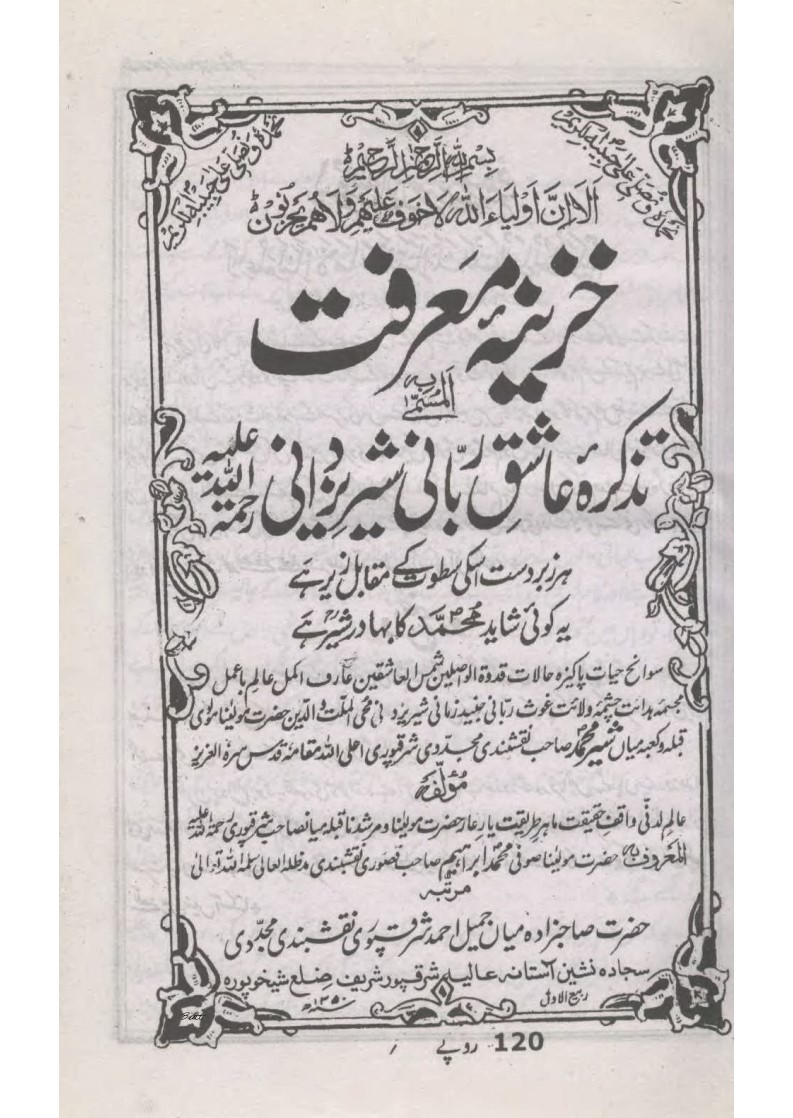 نحمدہ و نصلی علی حبیبہ الکریم
نحمدہ و نصلی علی حبیبہ الکریم
بسم اللہ الرحمن الرحیم
الا ان اولیاء اللہ لا خوف علیہم ولا ہم یحزنون
خزینۂ معرفت
المسمّٰی بہ
تذکرۂ عاشقِ ربّانی شیرِ یزدانی رحمۃ اللہ علیہ
ہر زبردست اسکی سطوت کے مقابل زیر ہے
یہ کوئی شاید محمدؐ کا بہادر شیر ہے
سوانح حیات پاکیزہ حالات قدوۃ الواصلین شمس العاشقین عارف اکمل عالم باعمل
چشمۂ ولائت غوث ربانی جنید زمانی شیر یزدانی محی الملت والدین حضرت مولینا مولوی
قبلہ و کعبہ میاں شیر محمد صاحب نقشبندی مجددی شرقپوری اعلی اللہ مقامہ قدس سرہ العزیز
مؤلفہ
عالم لدنی واقف حقیقت ماہر طریقت یار غار حضرت مولینا و مرشدنا قبلہ میانصاحب شرقپوری رحمۃ اللہ علیہ
المعروف بہ حضرت مولینا صوفی محمد ابراہیم صاحب قصوری نقشبندی مدظلہ العالی سلمہ اللہ تعالیٰ
مرتبہ
حضرت صاحبزادہ میاں جمیل احمد شرقپوری نقشبندی مجددی
سجادہ نشین آستانہ عالیہ شرقپور شریف ضلع شیخوپورہ
ربیع الاول ۱۳۵۰ھ
120 روپے